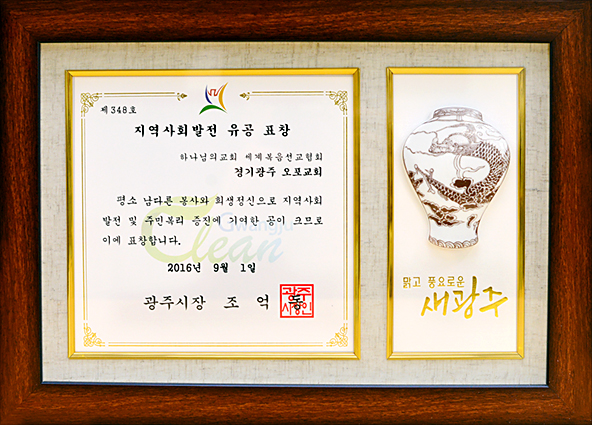 제 348호
지역사회발전 유공 표창
하나님의교회 세계복음선교협회
경기광주 오포교회
평소 남다른 봉사와 희생정신으로 지역사회
발전 및 주민복리 증진에 기여한 공이 크므로
이에 표창합니다.
Clean
Gwangju
2016년 9월 1일
광주시장 조억동
광주
시장인
맑고 풍요로운
새광주